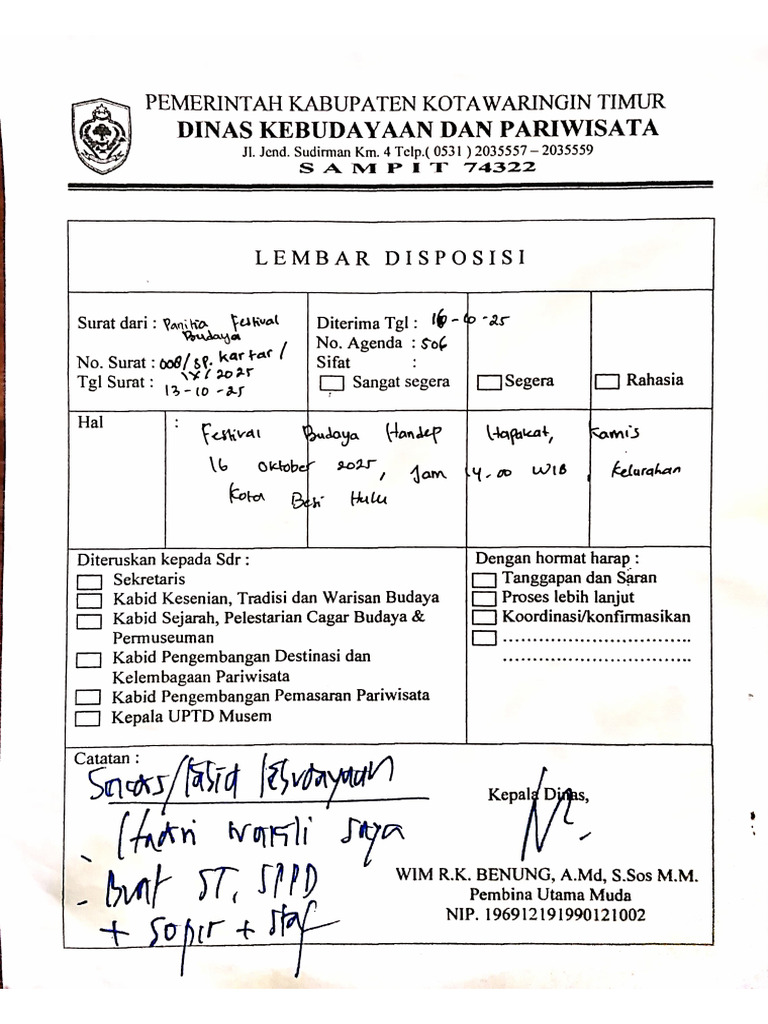 PEMERINTAH KABUPATEN KOTAWARINGIN TIMUR
DINAS KEBUDAYAAN DAN PARIWISATA
Jl. Jend. Sudirman Km. 4 Telp.( 0531 ) 2035557 – 2035559
S A M P I T 74322
LEMBAR DISPOSISI
Surat dari : Panitia Festival
Budaya
No. Surat : 008/SP. kartar/
IX/2025
Tgl Surat : 13-10-25
Diterima Tgl : 16-10-25
No. Agenda : 506
Sifat :
Sangat segera
Segera
Rahasia
Hal : Festival Budaya Handep Hapakat, Kamis
16 Oktober 2025, Jam 14.00 WIB, Kelurahan
Kota Besi Hulu
Diteruskan kepada Sdr :
Sekretaris
Kabid Kesenian, Tradisi dan Warisan Budaya
Kabid Sejarah, Pelestarian Cagar Budaya &
Permuseuman
Kabid Pengembangan Destinasi dan
Kelembagaan Pariwisata
Kabid Pengembangan Pemasaran Pariwisata
Kepala UPTD Musem
Dengan hormat harap :
Tanggapan dan Saran
Proses lebih lanjut
Koordinasi/konfirmasikan
................................
................................
Catatan :
/Kabid Kebudayaan
- Hadiri wakili saya
- Buat ST, SPPD
+ sopir + staf
Kepala Dinas,
WIM R.K. BENUNG, A.Md, S.Sos M.M.
Pembina Utama Muda
NIP. 196912191990121002